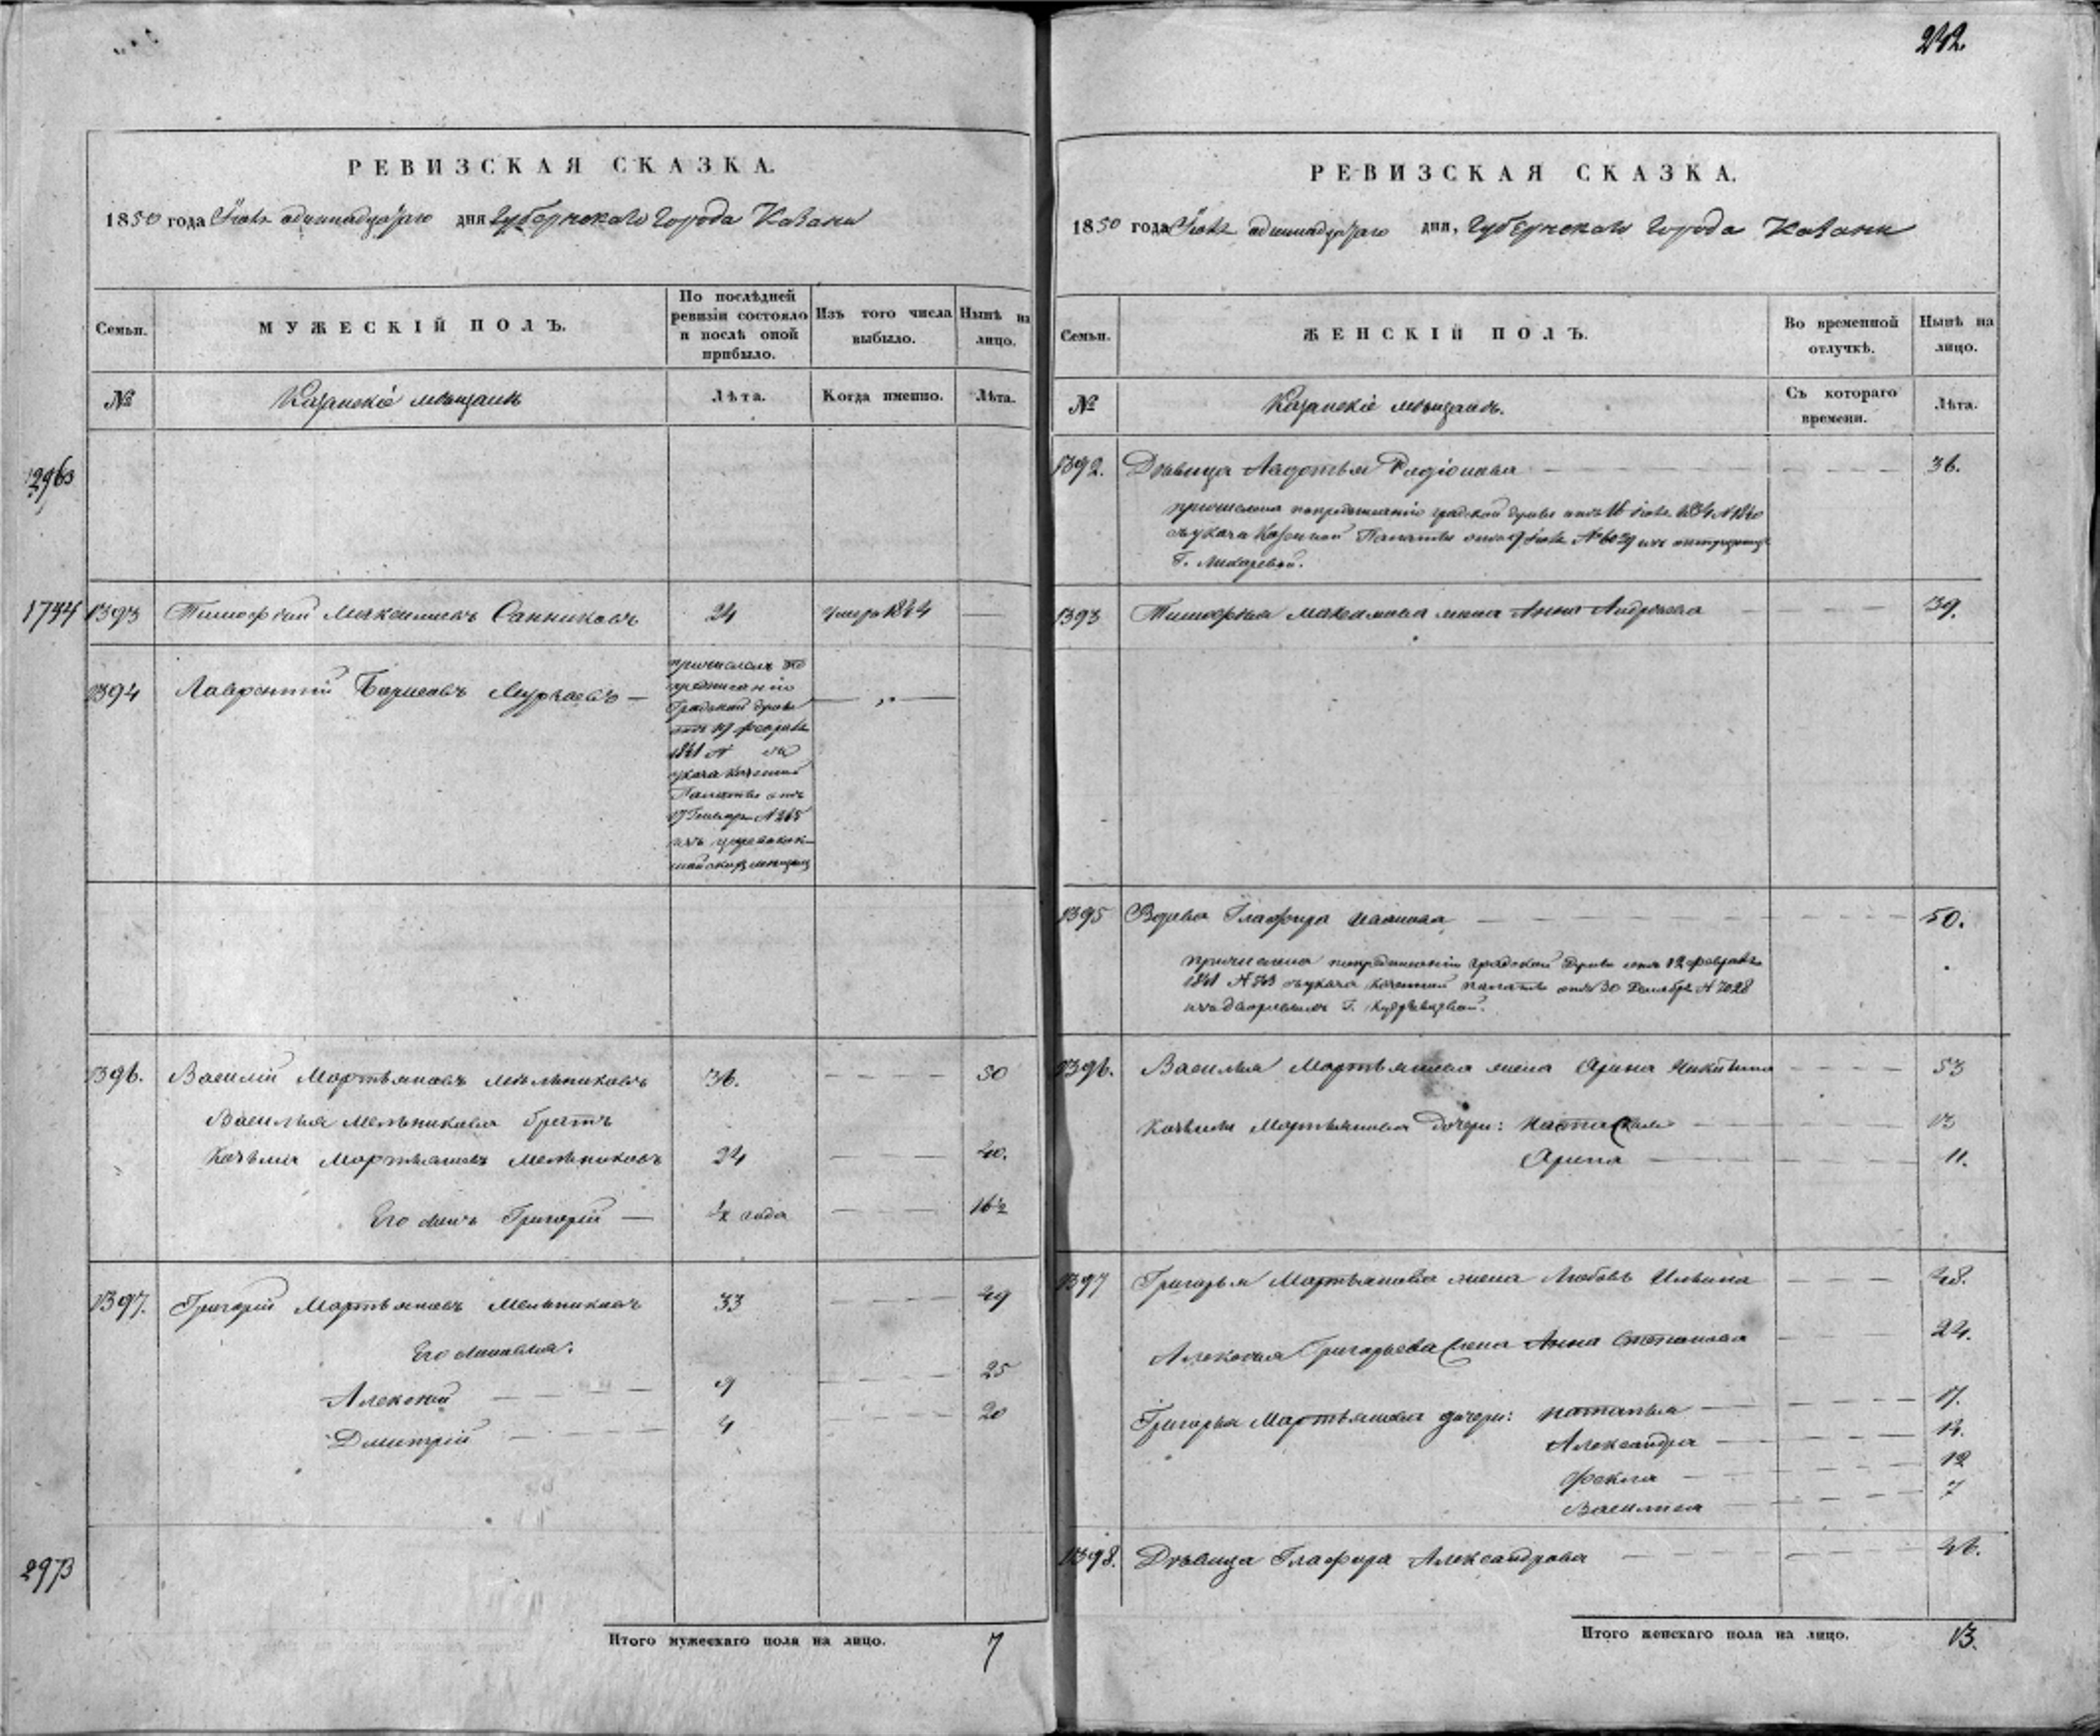 242.
РЕВИЗСКАЯ СКАЗКА.
1850 года одиннадцатаго дня Губернскаго города Казани
Семьи.
МУЖЕСКІЙ ПОЛЪ.
По послѣдней
ревизіи состояло
и послѣ оной
прибыло.
Изъ того числа
выбыло.
Нынѣ на
лицо.
№
Казанскіе мѣщане
Лѣта.
Когда именно.
Лѣта.
2963
1744 1393 Тимофей Максимовъ Санниковъ 24 умеръ 1844 —
1394 Лаврентій Борисовъ —
причисленъ по
предписанію
Градской думы
отъ 19 февраля
1841 № за
указа казенной
Палаты отъ
17 Генваря № 265
изъ царевокок-
шайскихъ мещанъ
1396. Василій Мартьяновъ Мельниковъ 36. 50
Василья Мельникова братъ
Козьма Мартьяновъ Мельниковъ 24 40.
Его сынъ Григорій — ½ года 16½
1397. Григорій Мартьяновъ Мельниковъ 33 49
Его сыновья:
Алексей 9 25
Дмитрій 4 20
2973
Итого мужескаго пола на лицо. 7
РЕВИЗСКАЯ СКАЗКА.
1850 года одиннадцатаго дня, Губернскаго города Казани
Семьи.
ЖЕНСКІЙ ПОЛЪ.
Во временной
отлучкѣ.
Нынѣ на
лицо.
№
Казанскіе мѣщане.
Съ котораго
времени.
Лѣта.
1392. Девица Авдотья Радіонова 36.
причислена по предписанію градской думы отъ 16 1834 № 1840
указа Казенной Палаты № 6029
Г.
1393 Тимофея Максимова жена Анна Андреева 39.
1395 Вдова Глафира Иванова 50.
причислена по предписанію градской думы отъ 12 февраля
1841 № 763 указа казенной палаты отъ 30 Декабря № 7028
Г.
1396. Василья Мартьянова жена Арина Никитина 53
Козьмы Мартьянова дочери: Настасья 13
Арина 11.
1397 Григорья Мартьянова жена Любовь Ильина 48.
Алексея Григорьева жена Анна Степанова 24.
Григорья Мартьянова дочери: Наталья 17.
Александра 14.
Фекла 12
Василиса 7
1398. Девица Глафира Александрова 46.
Итого женскаго пола на лицо. 13.